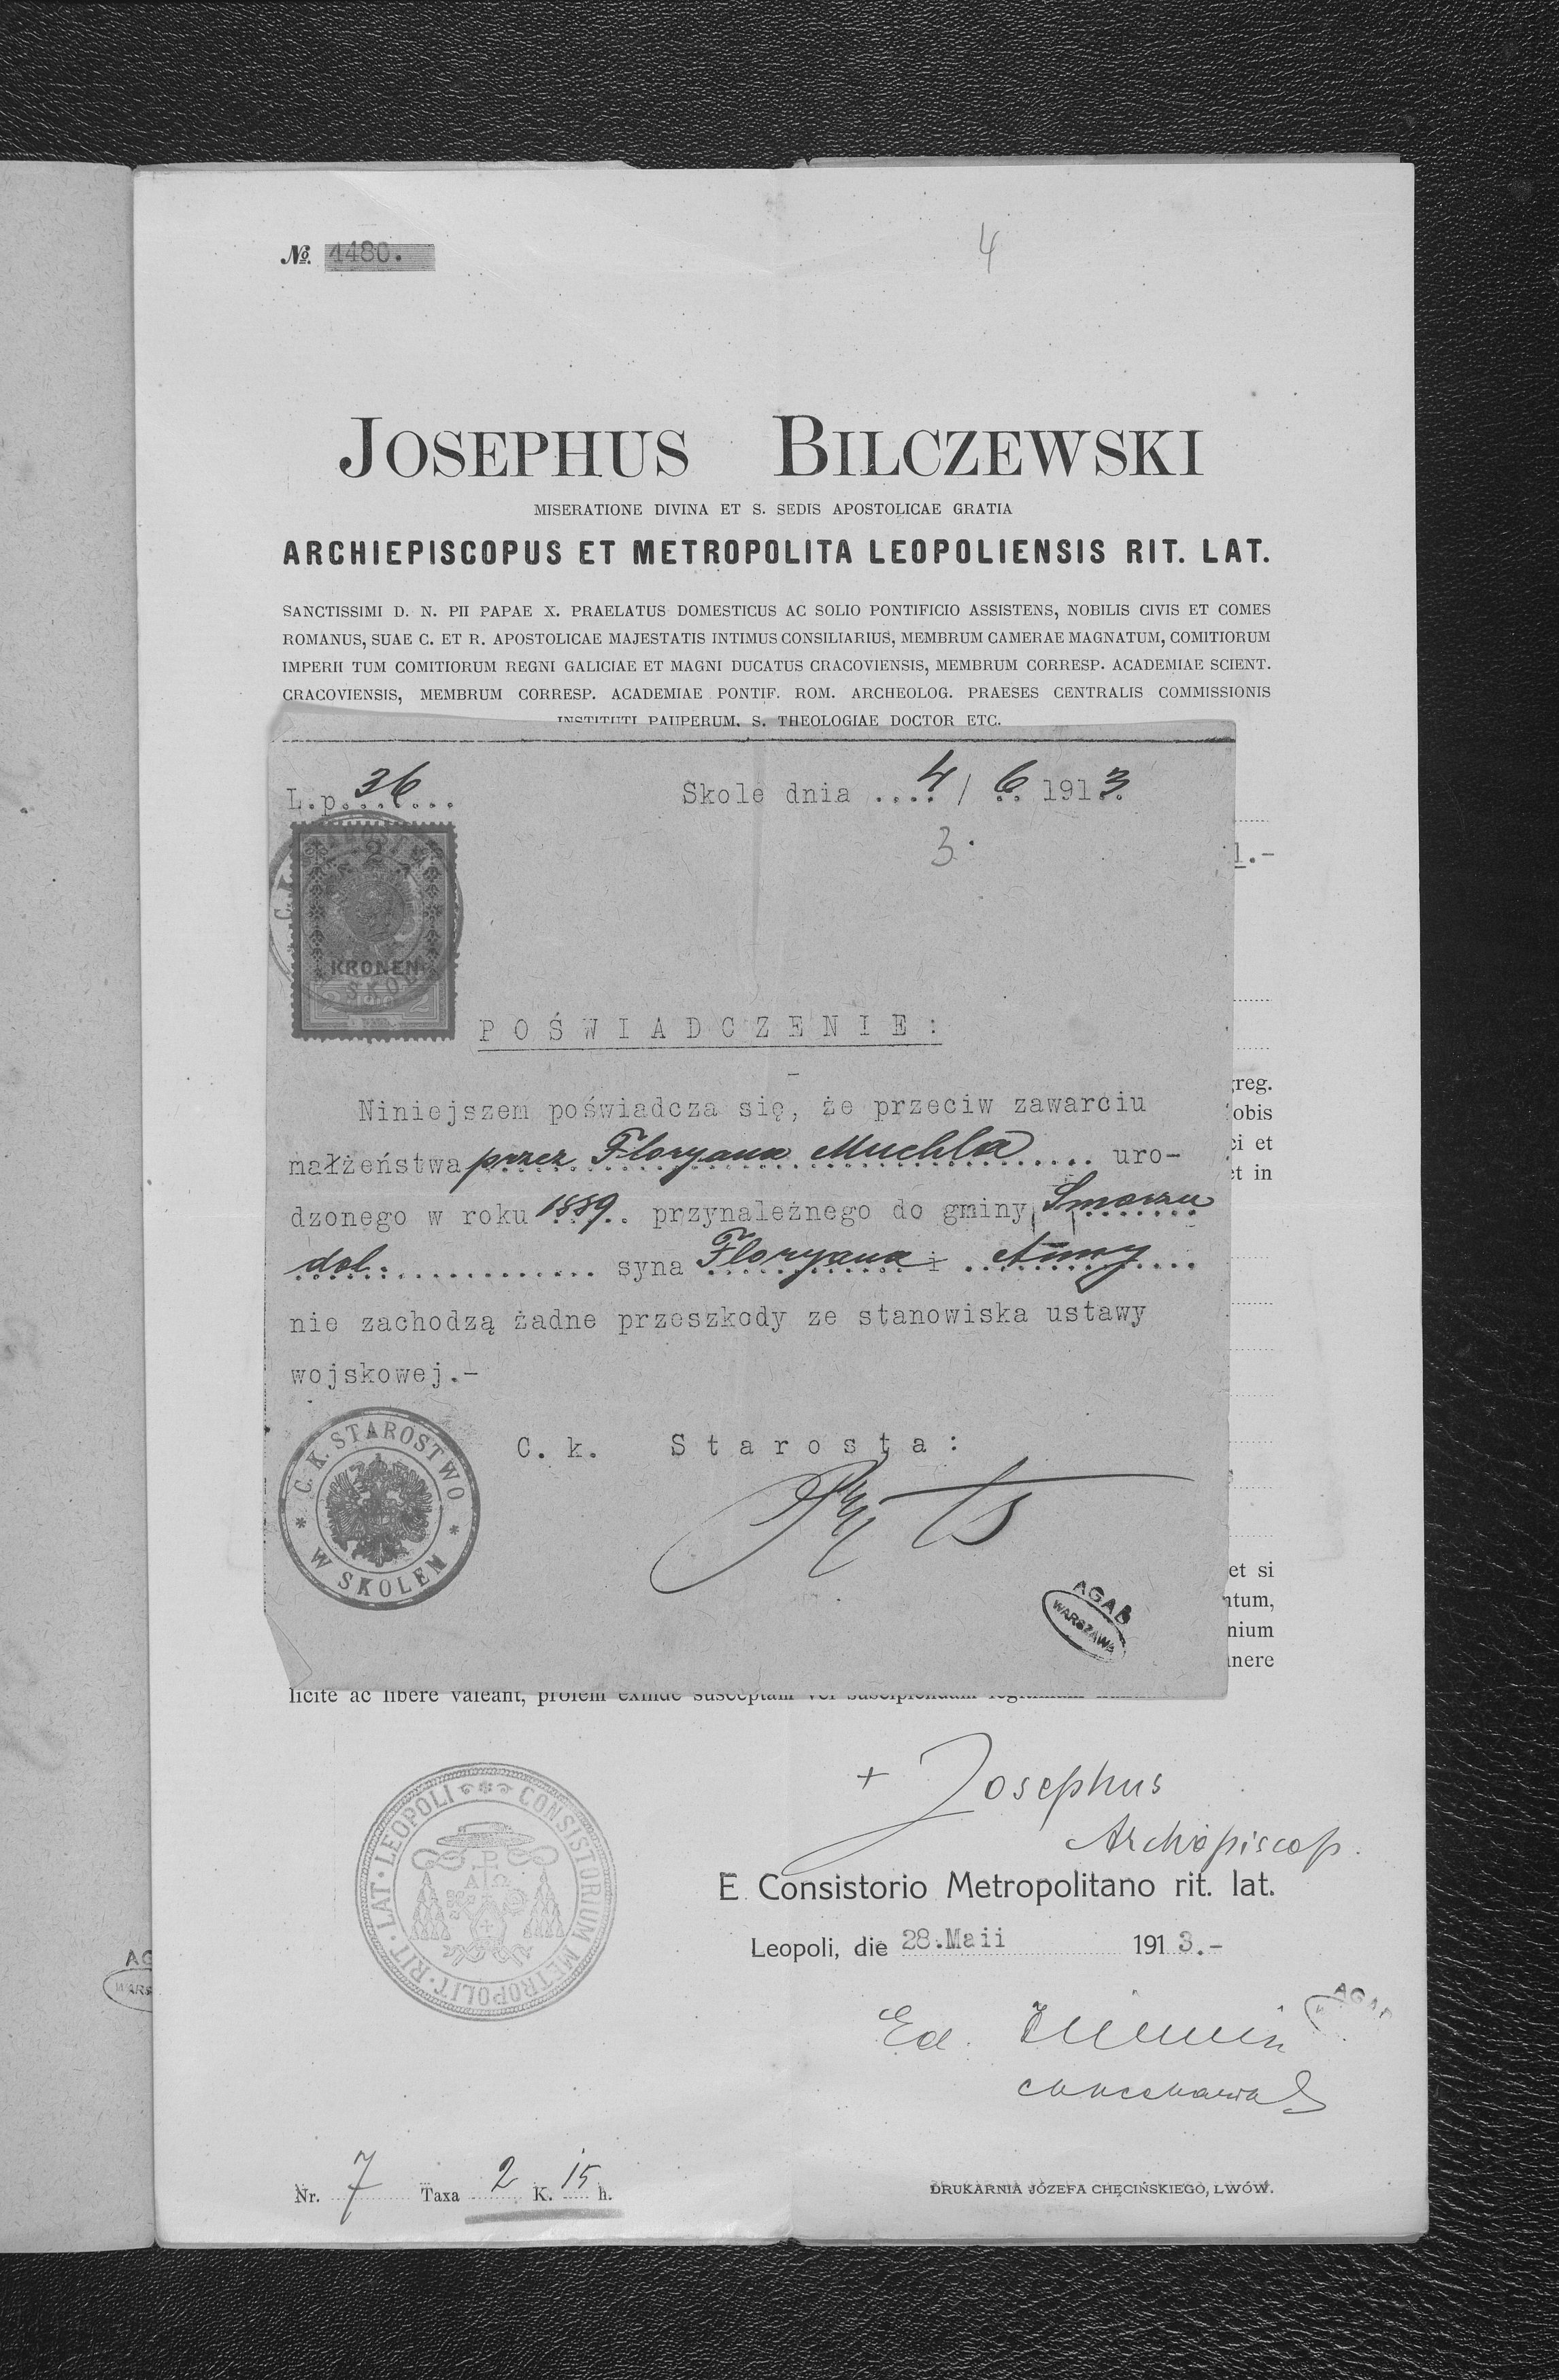 No. 1480.
4
JOSEPHUS BILCZEWSKI
MISERATIONE DIVINA ET S. SEDIS APOSTOLICAE GRATIA
ARCHIEPISCOPUS ET METROPOLITA LEOPOLIENSIS RIT. LAT.
SANCTISSIMI D. N. PII PAPAE X. PRAELATUS DOMESTICUS AC SOLIO PONTIFICIO ASSISTENS, NOBILIS CIVIS ET COMES
ROMANUS, SUAE C. ET R. APOSTOLICAE MAJESTATIS INTIMUS CONSILIARIUS, MEMBRUM CAMERAE MAGNATUM, COMITIORUM
IMPERII TUM COMITIORUM REGNI GALICIAE ET MAGNI DUCATUS CRACOVIENSIS, MEMBRUM CORRESP. ACADEMIAE SCIENT.
CRACOVIENSIS, MEMBRUM CORRESP. ACADEMIAE PONTIF. ROM. ARCHEOLOG. PRAESES CENTRALIS COMMISSIONIS
INSTITUTI PAUPERUM, S. THEOLOGIAE DOCTOR ETC.
L.p. 36 Skole dnia 4/6 1913
3.
2
KRONEN
SKOL
2 1910 2
POŚWIADCZENIE:
Niniejszem poświadcza się, że przeciw zawarciu
małżeństwa przez Floryana Muchla uro-
dzonego w roku 1889 przynależnego do gminy Smorzu
dol. syna Floryana i Anny
nie zachodzą żadne przeszkody ze stanowiska ustawy
wojskowej.-
C. k. Starosta:
C. K. STAROSTWO * W SKOLEM *
AGAD
WARSZAWA
1.-
greg.
obis
ci et
et in
et si
ntum,
nium
anere
licite ac libere valeant, prolem exinde susceptam vel suscipiendam
+ Josephus
Archiepiscop.
CONSISTORIUM METROPOLIT. RIT. LAT. LEOPOLI
E Consistorio Metropolitano rit. lat.
Leopoli, die 28.Maii 1913.-
AGAD
Ed.
Nr. 7 Taxa 2 K. 15 h.
DRUKARNIA JÓZEFA CHĘCIŃSKIEGO, LWÓW.